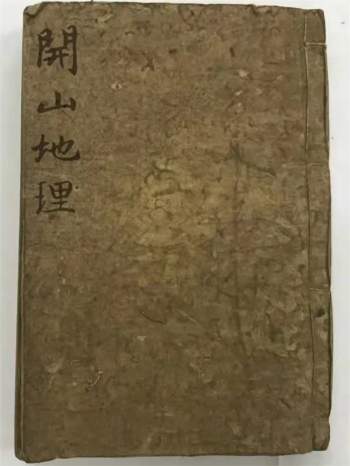 開山地理